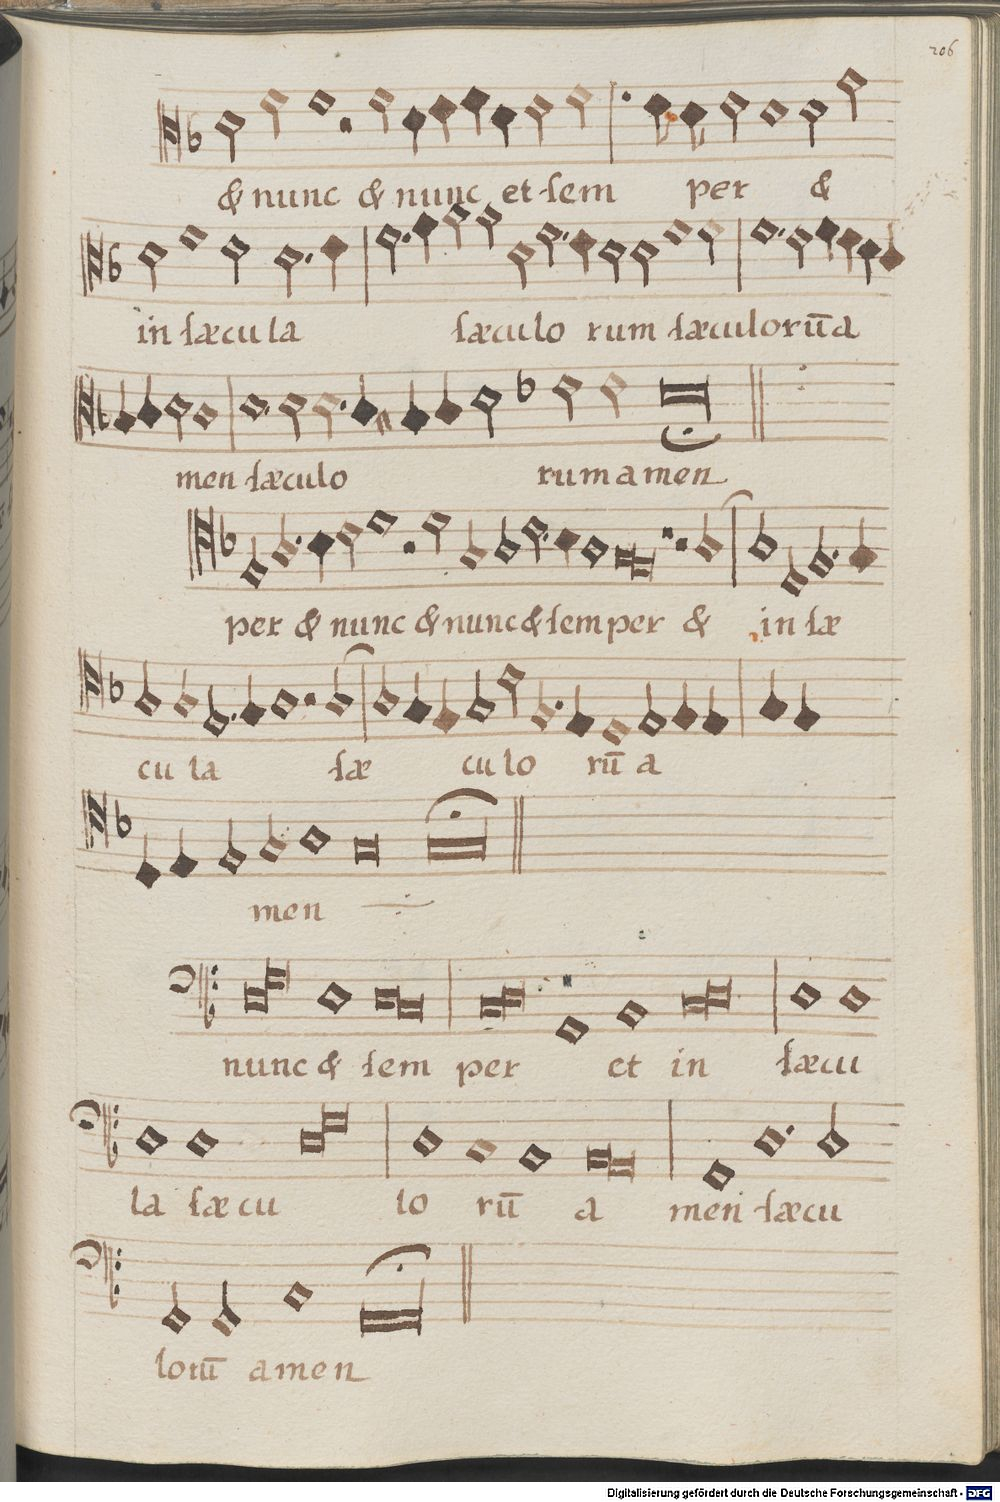 206
& nunc & nunc et sem per &
in sæcu la sæculo rum sæculorū a
men sæculo rum amen
per & nunc & nunc & semper & in sæ
cu la sæ culo rū a
men
nunc & sem per et in sæcu
la sæcu lo rū a men sæcu
lorū amen
Digitalisierung gefördert durch die Deutsche Forschungsgemeinschaft - DFG